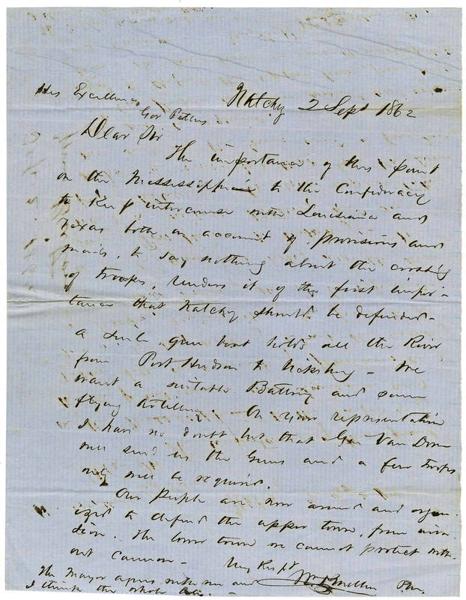 Natchez 2 Sept 1862
His Excellency
Gov Pettus
Dear Sir
The importance of this point
on the Mississippi to the Confederacy
to keep intercourse with Louisiana and
Texas both on account of provisions and
mails, to say nothing about the crossing
of troops, renders it of the first impor-
tance that Natchez should be defended-
a single gun boat holds all the River
from Port Hudson to Vicksburg - We
want a suitable Battery and some
flying Artillery - On your representation
I have no doubt but that Gen Van Dorn
will send us the Guns and a few troops
only will be required.
Our people are now armed and orga-
ized to defend the upper town, from inva-
sion. The lower town we cannot protect with-
out Cannon -
Very Respt
The Mayor agrees with me and
I think the whole